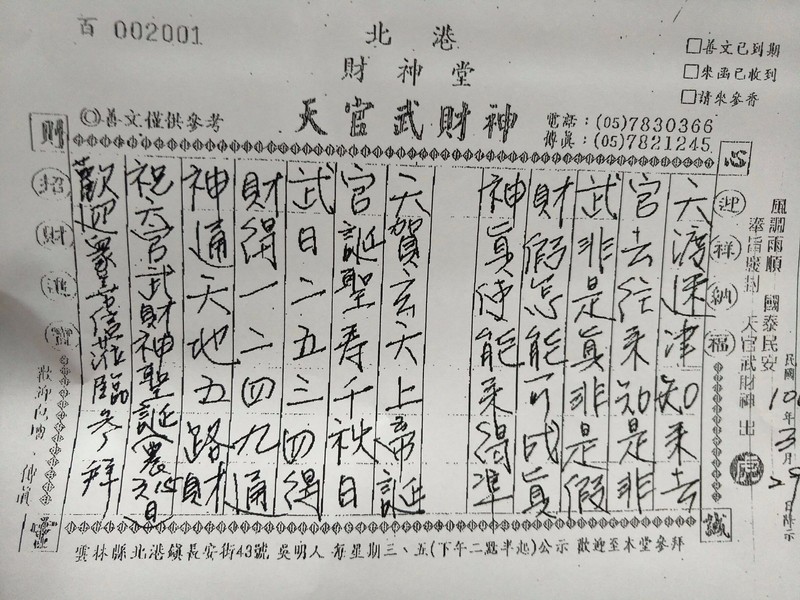 百 002001
北港
財神堂
天官武財神
◎善文僅供參考
電話：(05)7830366
傳真：(05)7821245
□善文已到期
□來函已收到
□請來參香
風調雨順 國泰民安
奉旨敕封 天官武財神 出
民國
年3月29日降示
心
迎祥納福
誠
天渡迷津知來去
官去往來知是非
武非是真非是假
財假怎能可成真
神真使能來得準
天賀玄天上帝誕
官誕聖壽千秋日
武日二五三四得
財得一二四九通
神通天地五路財
祝天官武財神聖誕
歡迎眾善信蒞臨參拜
財
招財進寶
靈
雲林縣北港鎮長安街43號 吳明人 每星期三、五(下午二點半起)公示 歡迎至本堂參拜